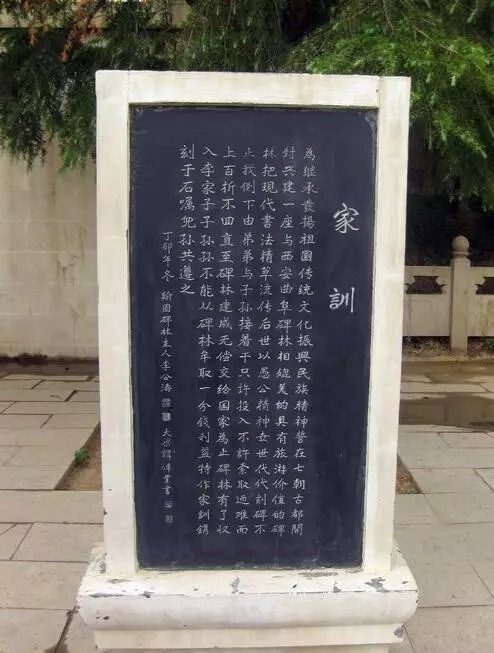 家訓
為继承發揚祖国传统文化振興民族精神誓在七朝古都開
封兴建一座与西安曲阜碑林相媲美的具有旅游价值的碑
林把現代書法精萃流传后世以愚公精神世世代代刻碑不
止我倒下由弟弟与子孙接着干只許投入不許索取迎难而
上百折不回直至碑林建成无偿交给国家為止碑林有了收
入李家子子孙孙不能从碑林牟取一分錢利益特作家訓鐫
刻于石嘱兒孙共遵之
丁卯年冬 翰園碑林主人李公濤 大梁 偉業書